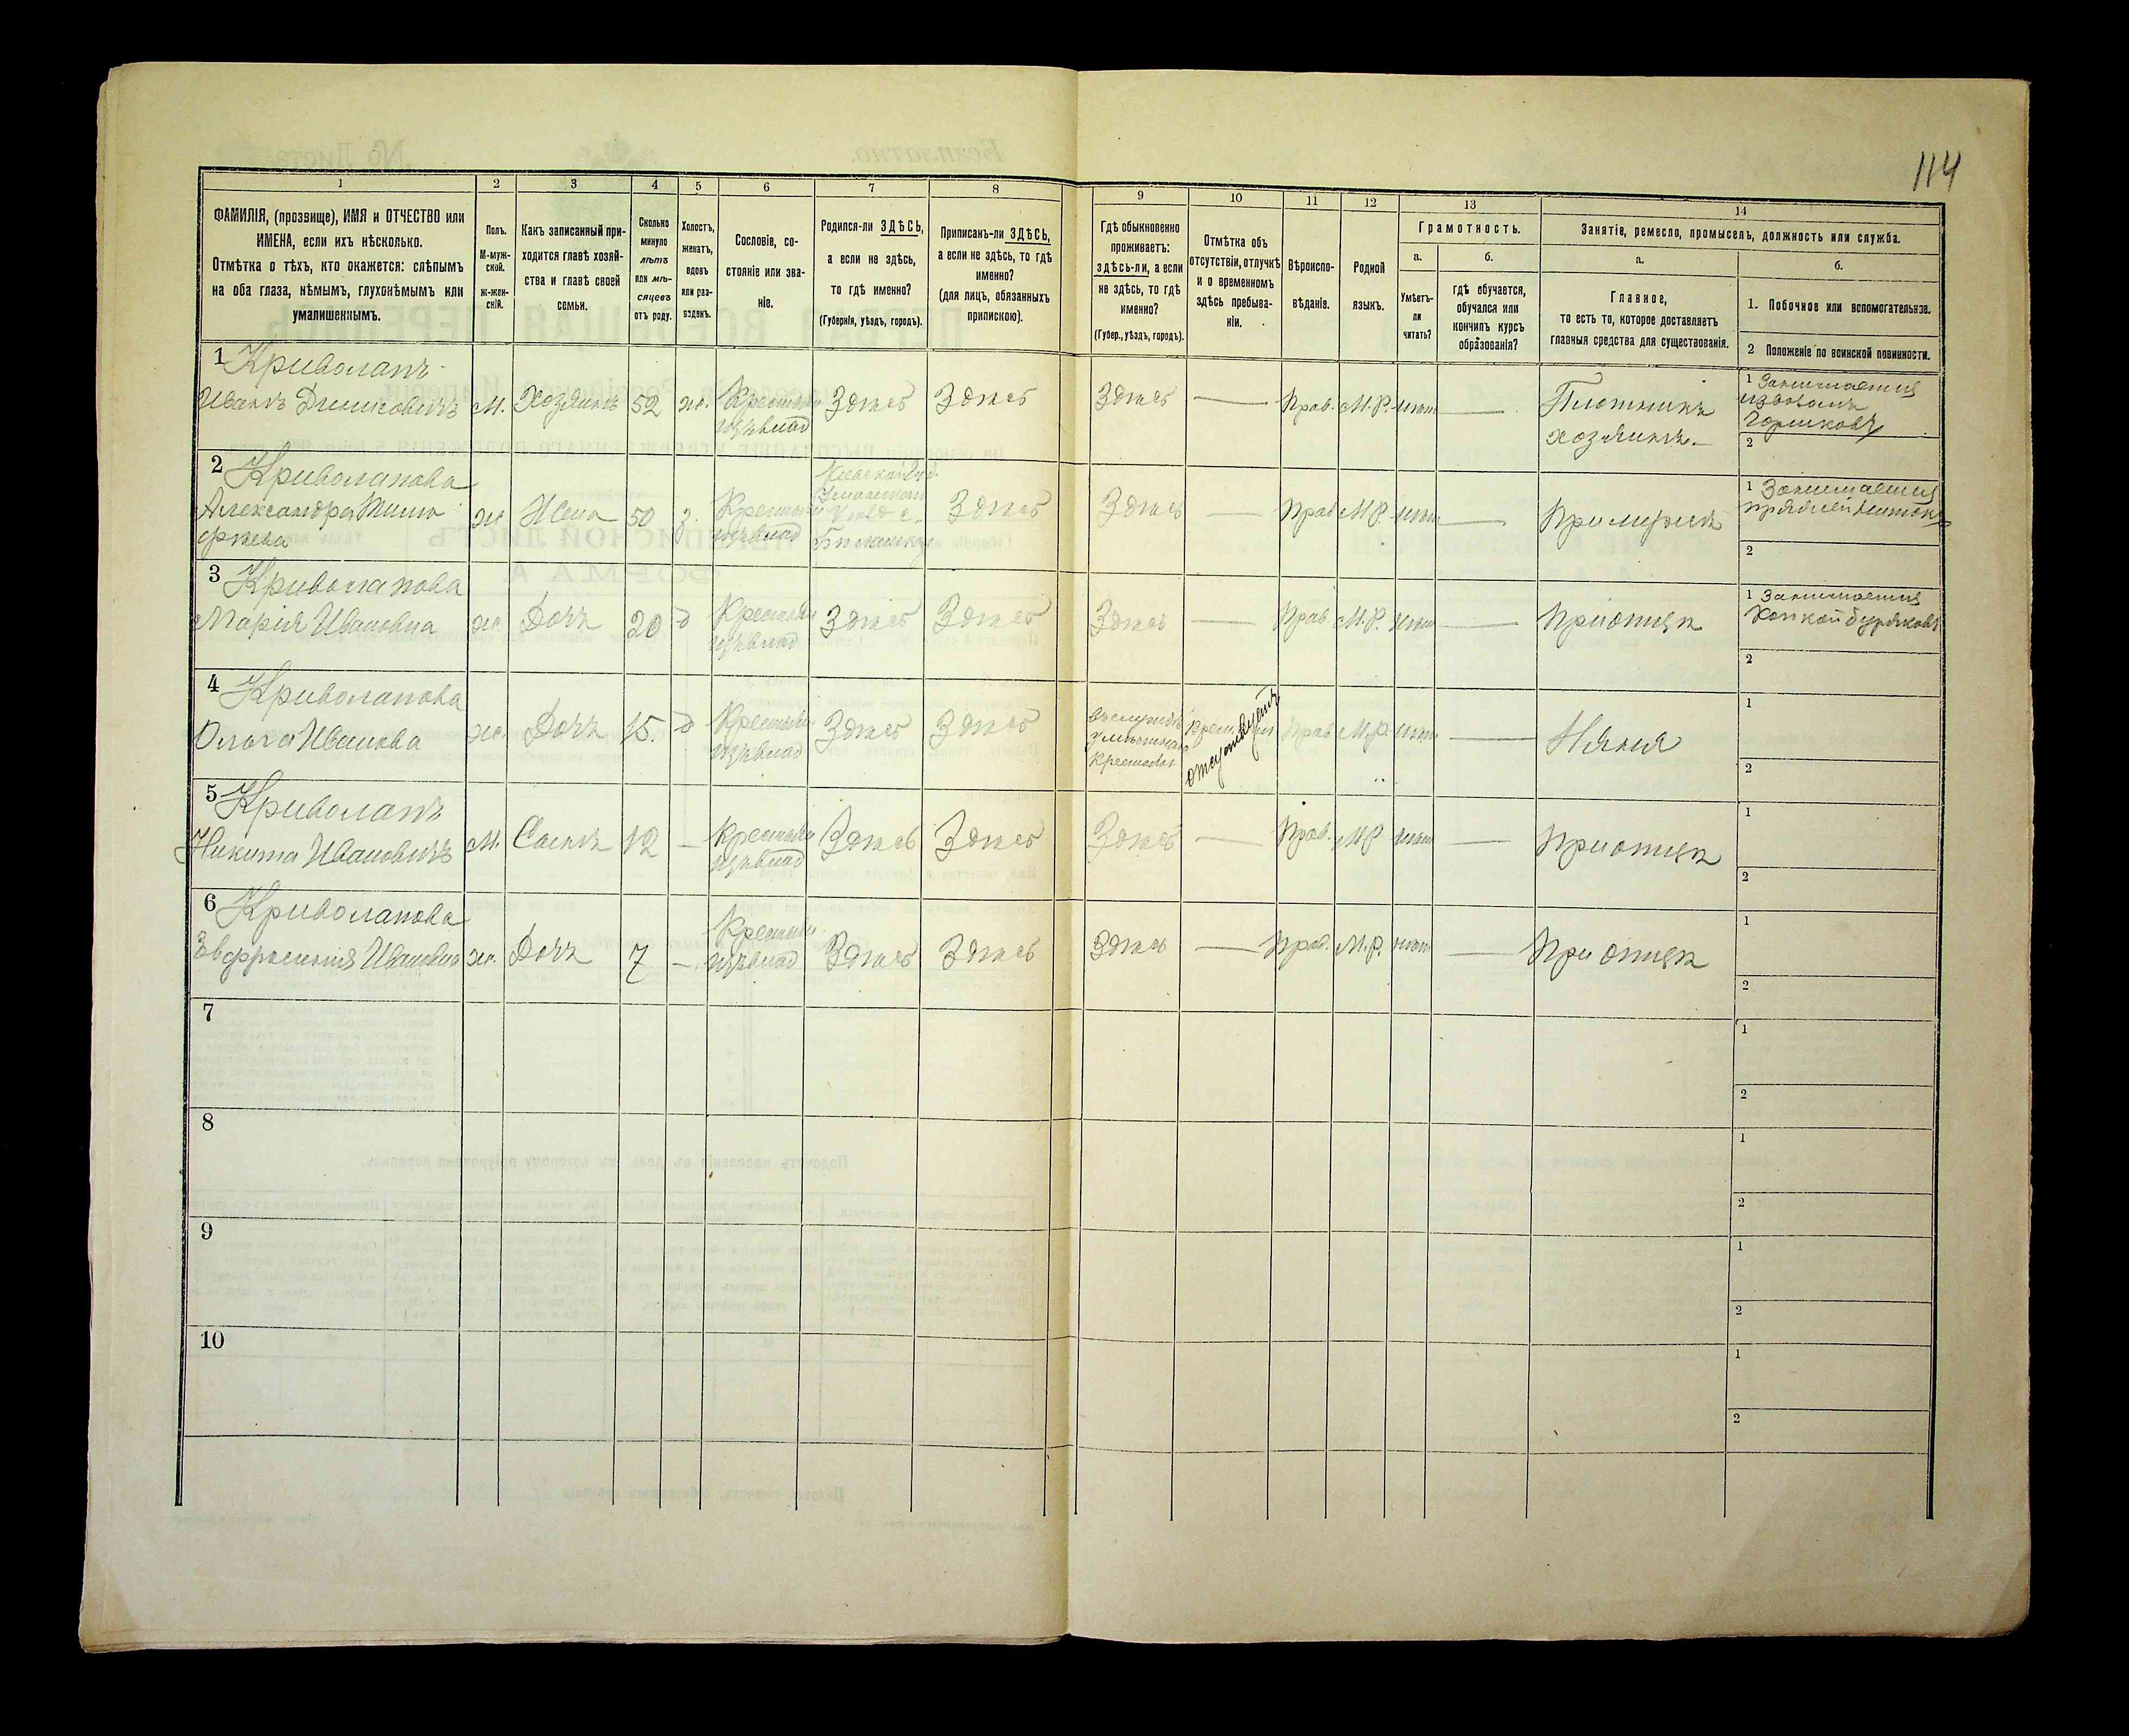 114
1 2 3 4 5 6 7 8 9 10 11 12 13 14
ФАМИЛІЯ, (прозвище), ИМЯ и ОТЧЕСТВО или
ИМЕНА, если ихъ нѣсколько.
Отмѣтка о тѣхъ, кто окажется: слѣпымъ
на оба глаза, нѣмымъ, глухонѣмымъ или
умалишеннымъ.
Полъ.
М-муж-
ской.
Ж-жен-
скій.
Какъ записанный при-
ходится главѣ хозяй-
ства и главѣ своей
семьи.
Сколько
минуло
лѣтъ
или мѣ-
сяцевъ
отъ роду.
Холостъ,
женатъ,
вдовъ
или раз-
веденъ.
Сословіе, со-
стояніе или зва-
ніе.
Родился-ли ЗДѢСЬ,
а если не здѣсь,
то гдѣ именно?
(Губернія, уѣздъ, городъ).
Приписанъ-ли ЗДѢСЬ,
а если не здѣсь, то гдѣ
именно?
(для лицъ, обязанныхъ
припискою).
Гдѣ обыкновенно
проживаетъ:
здѣсь-ли, а если
не здѣсь, то гдѣ
именно?
(Губер., уѣздъ, городъ).
Отмѣтка объ
отсутствіи, отлучкѣ
и о временномъ
здѣсь пребыва-
ніи.
Вѣроиспо-
вѣданіе.
Родной
языкъ.
Грамотность.
а.
Умѣетъ-
ли
читать?
б.
гдѣ обучается,
обучался или
кончилъ курсъ
образованія?
Занятіе, ремесло, промыселъ, должность или служба.
а.
Главное,
то есть то, которое доставляетъ
главныя средства для существованія.
б.
1. Побочное или вспомогательное.
2 Положеніе по воинской повинности.
1 Криволапъ
Иванъ Денисовичъ М. Хозяинъ 52 ж. Крестьян Здѣсь Здѣсь Здѣсь — Прав. М.Р. нѣт — Плотникъ
хозяинъ.
1 Занимается
извозомъ
Горшковъ
2
2 Криволапова
Александра Тимо
феева ж Жена 50 з. Крестьян
Киевской губ.
Уманскаго
Здѣсь Здѣсь — Прав М.Р. нѣт — При мужѣ
1 Занимается
пряжей нитокъ
2
3 Криволапова
Марія Ивановна ж. Дочь 20 д Крестьян Здѣсь Здѣсь Здѣсь — Прав. М.Р. нѣт — При отцѣ
1 Занимается
Копкой буряковъ
2
4 Криволапова
Ольга Иванова ж. Дочь 15. д Крестьян Здѣсь Здѣсь
отсутствуетъ
Прав М.Р. нѣт — Няня
1
2
5 Криволапъ
Никита Ивановичъ М. Сынъ 12 — Крестьян Здѣсь Здѣсь Здѣсь — Прав. М.Р. нѣт — При отцѣ
1
2
6 Криволапова
Евфросинія Ивановна ж. Дочь 7 — Крестьян Здѣсь Здѣсь Здѣсь — Прав. М.Р. нѣт — При отцѣ
1
2
7
1
2
8
1
2
9
1
2
10
1
2